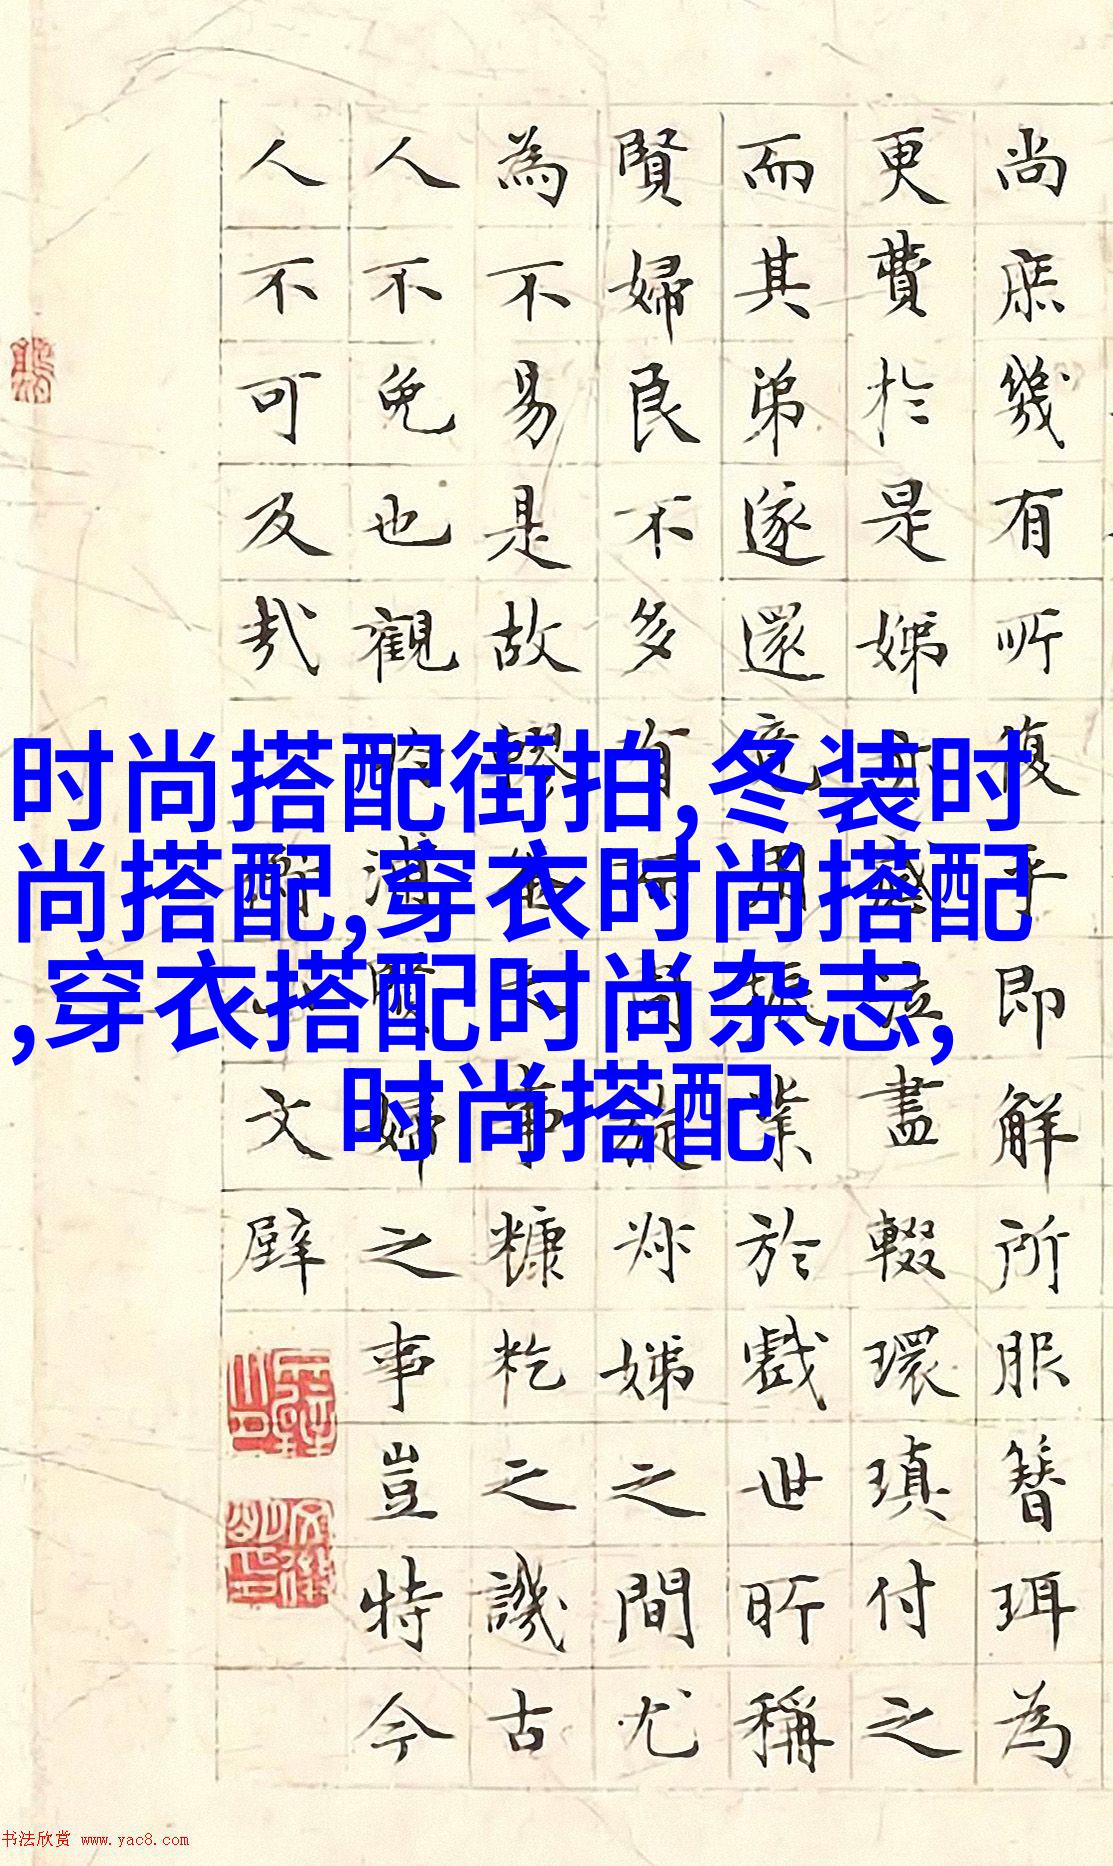 尚庶幾有所復乎即解所服簪珥為
更費於是娣泣盡輟環瑱付之
而其弟遂還竟用振業於戲世所稱
賢婦良不多有娣之間尤
為不易是故事糠籺之譏古
人不免也觀婦之事豈特今
人不可及哉
文璧
时尚搭配街拍,冬装时
尚搭配,穿衣时尚搭配
,穿衣搭配时尚杂志,
时尚搭配
书法欣赏 www.yac8.com